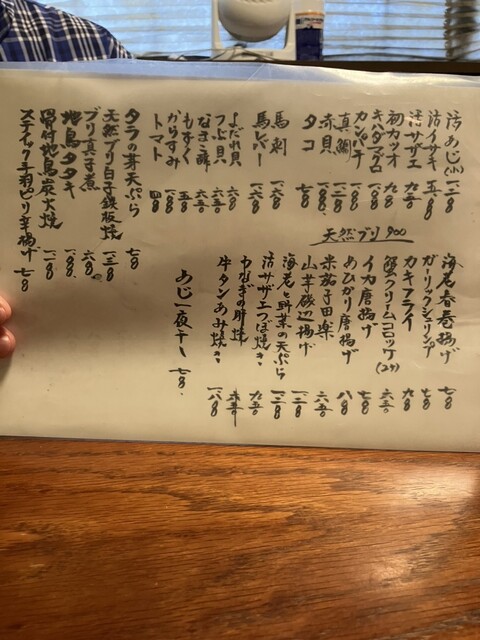 活あじ(小) 一、一〇〇
活イサキ 一、五〇〇
活サザエ 九五〇
初カツオ 九〇〇
キハダマグロ 九〇〇
カンパチ 一、一〇〇
真鯛 一、一〇〇
赤貝 一、八〇〇
タコ 七〇〇
馬刺 一、八〇〇
馬レバー 一、六〇〇
よだれ貝 六〇〇
つぶ貝 六五〇
なまこ酢 六五〇
もずく 五〇〇
からすみ 一、八〇〇
トマト 四〇〇
タラの芽天ぷら 七〇〇
天然ブリ白子鉄板焼 一、三〇〇
ブリ真子煮 六〇〇
地鳥タタキ 一、一〇〇
骨付地鳥炭火焼 一、一〇〇
スティック手羽ピリ辛揚げ 七〇〇
天然ブリ 900
海老春巻揚げ 七〇〇
ガーリックシュリンプ 七〇〇
カキフライ 九〇〇
蟹クリームコロッケ(2ケ) 六五〇
イカ唐揚げ 七〇〇
めひかり唐揚げ 八〇〇
米茄子田楽 六五〇
山芋磯辺揚げ
海老と野菜の天ぷら
活サザエつぼ焼き 九五〇
うなぎの肝焼
牛タンあみ焼き 一、八〇〇
あじ一夜干し 七〇〇